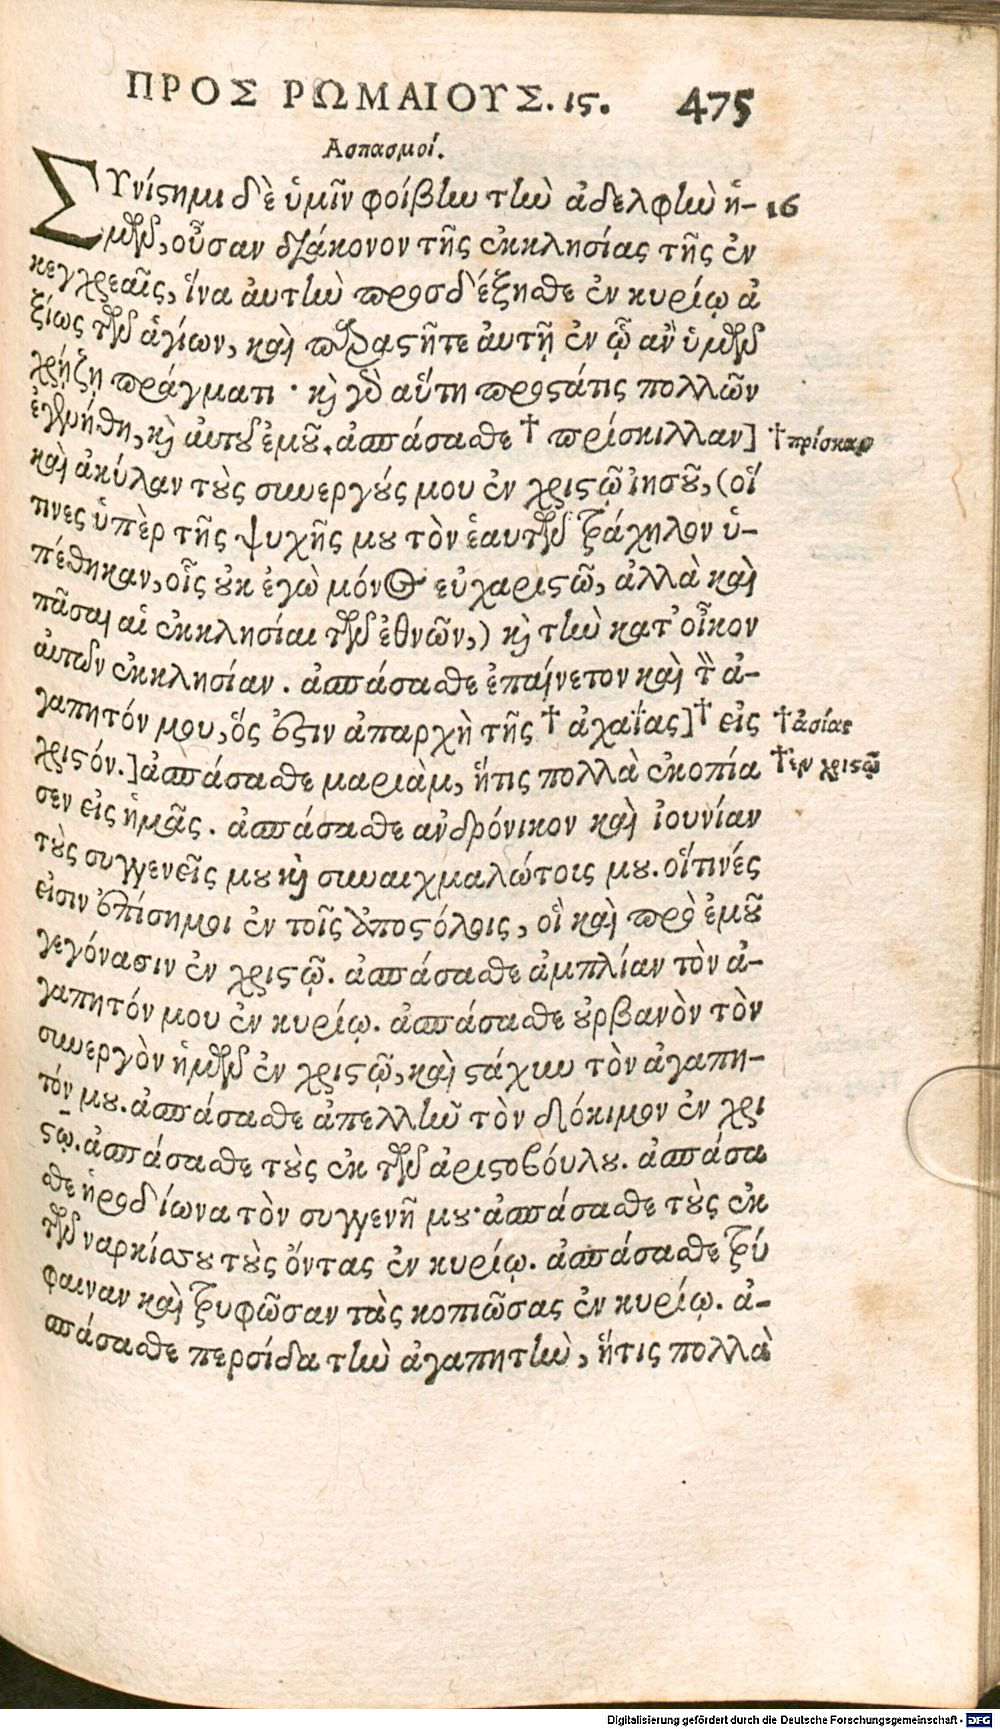 ΠΡΟΣ ΡΩΜΑΙΟΥΣ. 15. 475
Ασπασμοί.
ΣΥνίστημι δὲ ὑμῖν φοίβην τὴν ἀδελφὴν ἡ- 16
μῶν, οὖσαν διάκονον τῆς ἐκκλησίας τῆς ἐν
κεγχρεαῖς, ἵνα ἀυτὴν προσδέξησθε ἐν κυρίῳ ἀ
ξίως τῶν ἁγίων, καὶ παραστῆτε ἀυτῇ ἐν ᾧ ἂν ὑμῶν
χρῄζῃ πράγματι · καὶ γὸ αὕτη προστάτις πολλῶν
ἐγενήθη, καὶ ἀυτοῦ ἐμοῦ. ἀσπάσασθε † πρίσκιλλαν] † πρίσκαν
καὶ ἀκύλαν τοὺς συνεργούς μου ἐν χριστῷ ἰησοῦ, (οἵ
τινες ὑπὲρ τῆς ψυχῆς μου τὸν ἑαυτῶν τράχηλον ὑ-
πέθηκαν, οἷς οὐκ ἐγὼ μόνος εὐχαριστῶ, ἀλλὰ καὶ
πᾶσαι αἱ ἐκκλησίαι τῶν ἐθνῶν,) καὶ τὴν κατ' οἶκον
ἀυτῶν ἐκκλησίαν. ἀσπάσασθε ἐπαίνετον καὶ τὸν ἀ-
γαπητόν μου, ὅς ἐστιν ἀπαρχὴ τῆς † ἀχαΐας] † εἰς † ἀσίας
χριστόν.] ἀσπάσασθε μαριὰμ, ἥτις πολλὰ ἐκοπία † ἐν χριστῷ
σεν εἰς ἡμᾶς. ἀσπάσασθε ανδρόνικον καὶ ἰουνίαν
τοὺς συγγενεῖς μου καὶ συναιχμαλώτοις μου. οἵτινές
εἰσιν ἐπίσημοι ἐν τοῖς ἀποστόλοις, οἳ καὶ πρὸ ἐμοῦ
γεγόνασιν ἐν χριστῷ. ἀσπάσασθε ἀμπλίαν τὸν ἀ-
γαπητόν μου ἐν κυρίῳ. ἀσπάσασθε οὐρβανὸν τὸν
συνεργὸν ἡμῶν ἐν χριστῷ, καὶ στάχυν τὸν ἀγαπη-
τόν μου. ἀσπάσασθε ἀπελλῆν τὸν δόκιμον ἐν χρι
στῳ. ἀσπάσασθε τοὺς ἐκ τῶν ἀριστοβούλου. ἀσπάσα
σθε ἡροδίωνα τὸν συγγενῆ μου· ἀσπάσασθε τοὺς ἐκ
τῶν ναρκίσου τοὺς ὄντας ἐν κυρίῳ. ἀσπάσασθε τρύ
φαιναν καὶ τρυφῶσαν τὰς κοπιῶσας ἐν κυρίῳ. ἀ-
σπάσασθε περσίδα τὴν ἀγαπητὴν, ἥτις πολλὰ
Digitalisierung gefördert durch die Deutsche Forschungsgemeinschaft - DFG